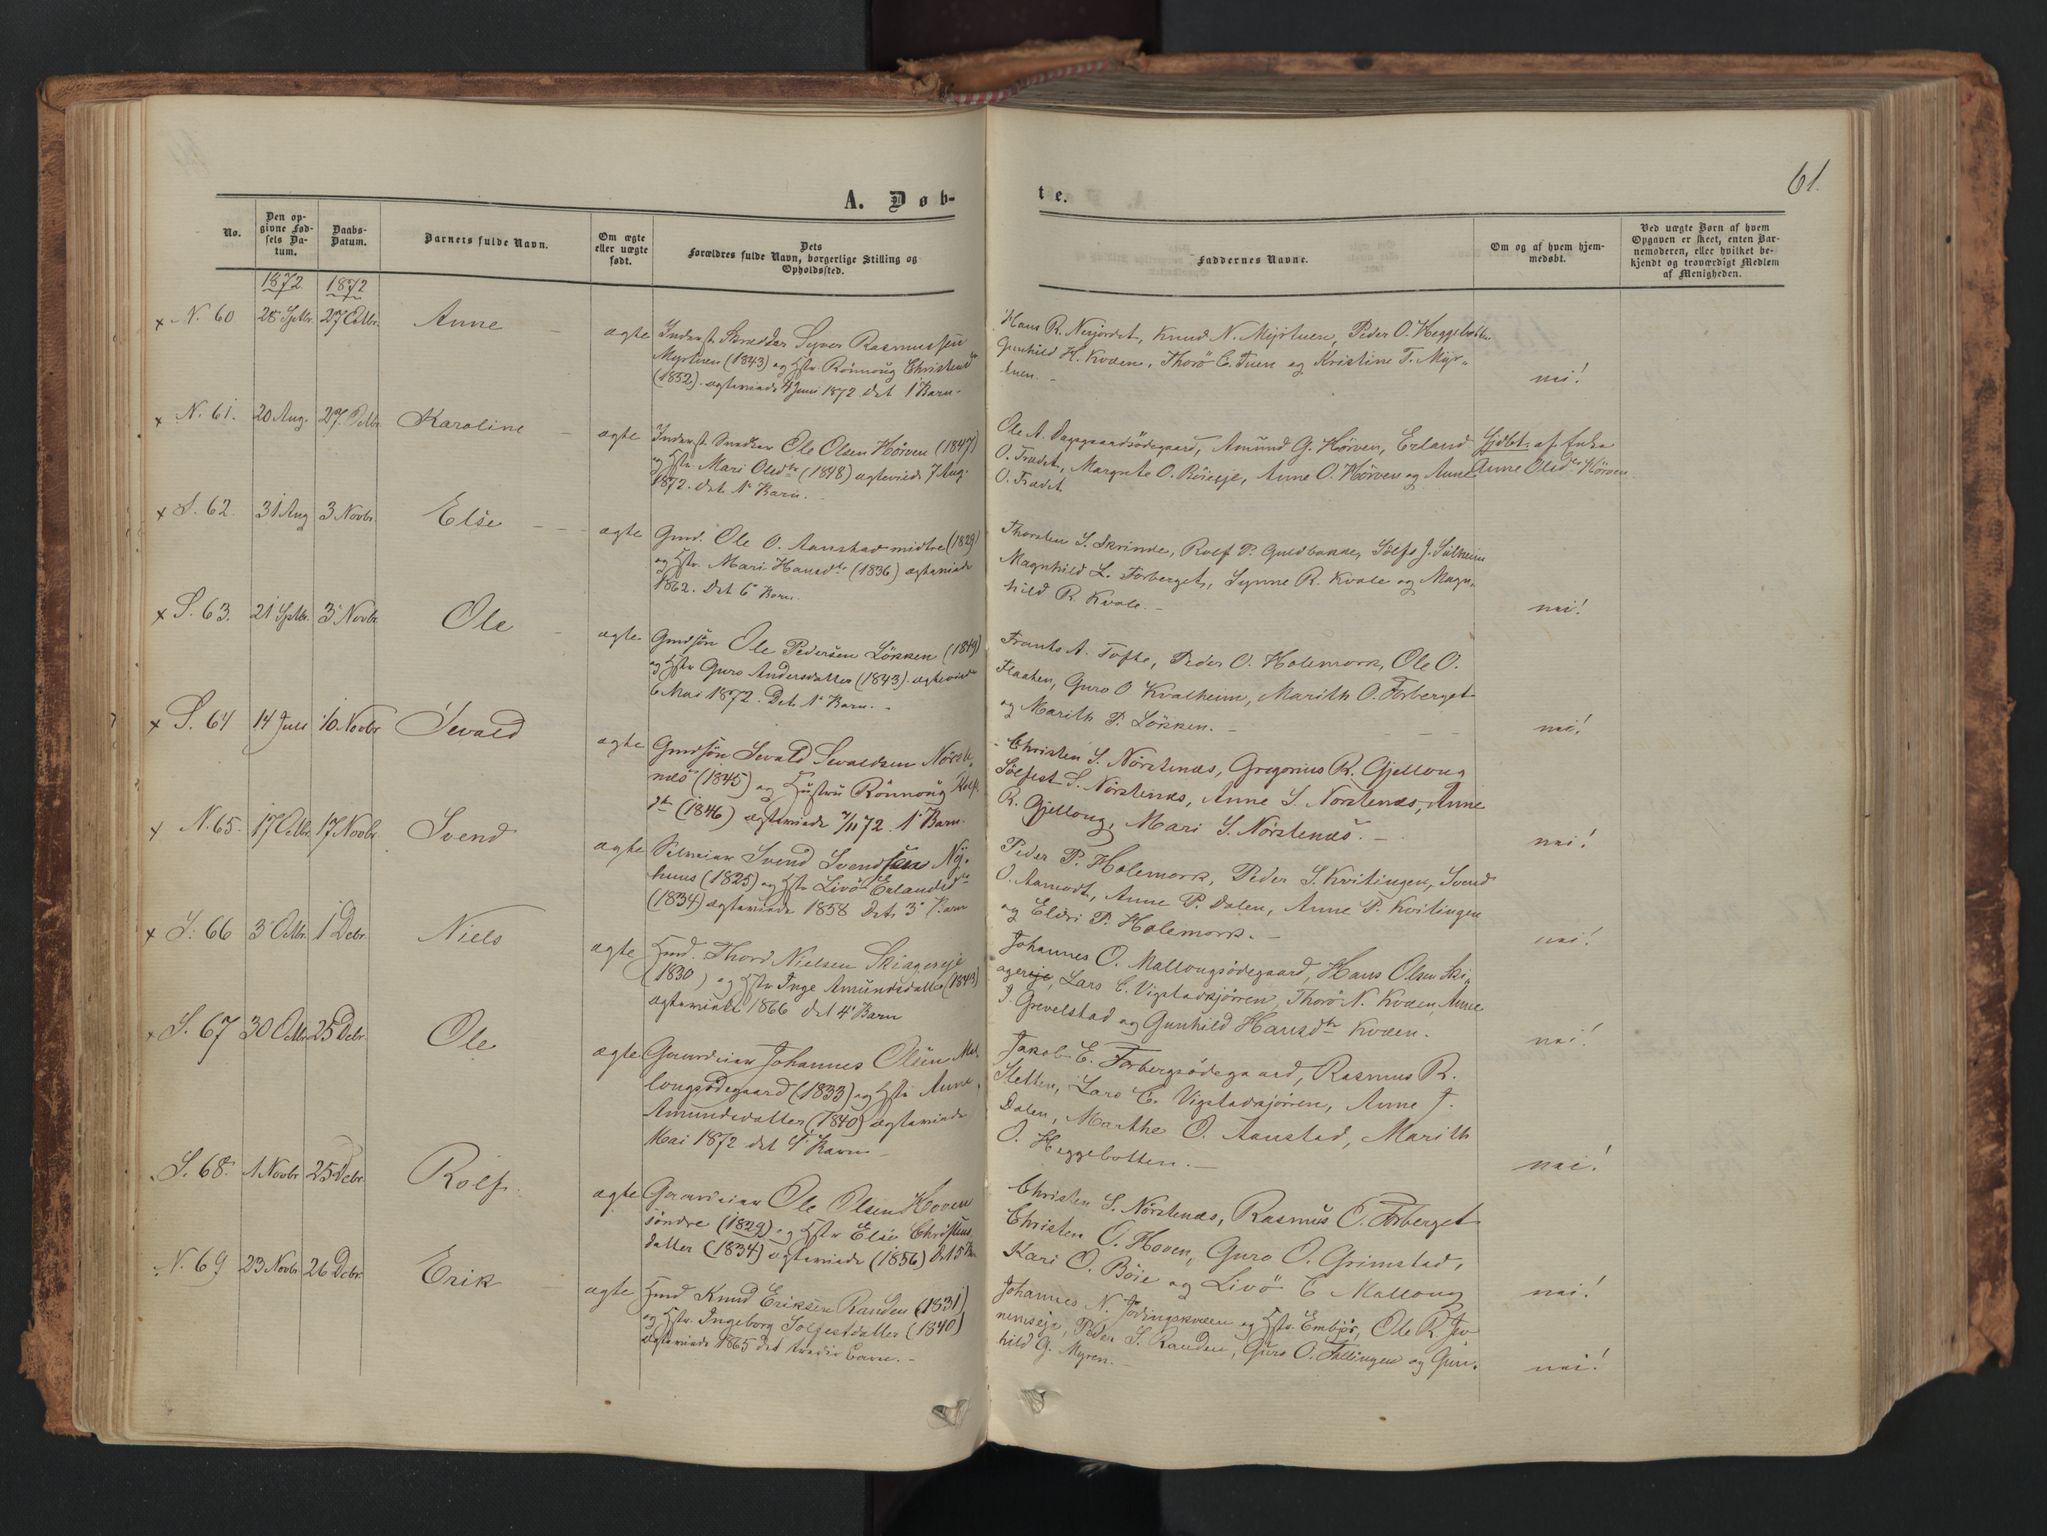 61.
A. Døb-
te.
No.
Den op-
givne Fød-
sels Da-
tum.
Daabs-
Datum.
Barnets fulde Navn.
Om ægte
eller uægte
født.
Dets
Forældres fulde Navn, borgerlige Stilling og
Opholdssted.
Faddernes Navne.
Om og af hvem hjem-
medøbt.
Ved uægte Børn af hvem
Opgaven er skeet, enten Bar-
nemoderen, eller hvilket be-
kjendt og troværdigt Medlem
af Menigheden.
1872 1872
x N. 60 28 Sptbr. 27 Octbr. Anne
ægte Inderst Skrædder Syver Rasmussen
Myrtuen (1843) og Hstr. Rönnoug Christensdtr
(1852). ægteviede 4 Juni 1872 det 1ste Barn.
Hans R. Nesjordet, Knud N. Myrtuen, Peder O. Heggebotten
Gunhild H. Kvæen, Thorö E. Tuen og Kristine T. Myr-
tuen. -
nei!
x N. 61. 20 Aug. 27. Octbr. Karoline
ægte Inderst. Snedker Ole Olsen Hörven (1847)
og Hstr. Mari Olsdtr (1848) ægteviede 7 Aug.
1872. det 1ste Barn.
Ole A. Dagsgaardsödegaard, Amund G. Hörven, Erland
O. Trædet, Margrete O. Böieeje, Anne O. Hörven og Anne
O. Trædet
Hjdbt. af Enke
Anne Olsdtr Hörven.
x S. 62. 31 Aug 3 Novbr. Else
ægte Gmd. Ole O. Aanstad midtre (1829)
og Hstr. Mari Hansdtr (1836) ægteviede
1862. Det 6te Barn.
Thorsten S. Skrinde, Rolf P. Guldbakke, Sölfs J. Sulheim
Magnhild L. Forberget, Synne R. Kvale og Magn-
hild R. Kvale. -
nei!
x S. 63. 21 Sptbr. 3 Novbr. Ole
ægte Gmdsön Ole Pedersen Lökken (1849)
og Hstr Guro Andersdatter (1843). ægteviede
6 Mai 1872. Det 1ste Barn. -
Frants A. Tofte, Peder O. Holemork, Ole O.
Flaaten, Guro O. Kvalheim, Marith O. Forberget
og Marith P. Lökken. -
nei!
x S. 64 14 Juli 10. Novbr Sevald
ægte Gmdsön Sevald Sevaldsen Nörste-
næs (1845) og Hustru Rönnoug
dtr (1846) ægteviede 7/11 72. 1ste Barn.
Christen S. Nörstenæs, Gregorius R. Gjellong
Sölfest S. Nörstenæs, Anne S. Norstenæs, Anne
R. Gjellong, Mari S. Nörstenæs. -
nei!
x N. 65. 17 Octbr. 17 Novbr. Svend
ægte Selveier Svend Svendsen Ny-
huus (1825) og Hstr Livö Erlandsdtr
(1834) ægteviede 1858 Det 3die Barn
Peder P. Holemork, Peder S. Kvitingen, Svend
O. Aamodt, Anne P. Dalen, Anne P. Kvitingen
og Eldri P. Holemork. -
nei!
x S. 66 3 Octbr. 1 Debr. Niels
ægte Hmd. Thord Nielsen Skiagereje
(1830) og Hstr Inge Amundsdatter (1843)
ægteviede 1866 det 4de Barn
Johannes O. Mallongsödegaard, Hans Olsen Ski-
agereje, Lars C. Vigstadkjörren, Thorö N. Kvæen, Anne
J. Grevelstad og Gunhild Hansdtr Kvæen.
nei!
x S. 67 30 Octbr. 25 Debr. Ole
ægte Gaardeier Johannes Olsen Mal-
longsödegaard (1833) og Hstr Anne
Amundsdatter (1840) ægteviede
Mai 1872 det 4de Barn -
Jakob E. Forbergsödegaard, Rasmus R.
Sletten, Lars C. Vigstadkjörren, Anne J.
Dalen, Marthe O. Aanstad, Marith
O. Heggebotten. -
nei!
S. 68. 1 Novbr 25 Debr. Rolf
ægte Gaardeier Ole Olsen Hoven
söndre (1829) og Hstr Else Christens
datter (1834) ægteviede (1856) Det 5te Bn
Christen S. Nörstenæs, Rasmus O. Forberget
Christen O. Hoven, Guro O. Grimstad,
Kari O. Böie og Livö C Mallong
nei!
N. 69 23 Novbr. 26 Debr. Erik
ægte Hmd Knud Eriksen Randen (1831)
og Hstr. Ingeborg Solfestdatter (1840)
ægteviede 1865 det tredie Barn. -
Johannes N. Jödingskvæen og Hstr. Embjör, Ole R.
Peder S. Randen, Guro O. Fellingen og Gun-
hild G. Myren. -
nei!